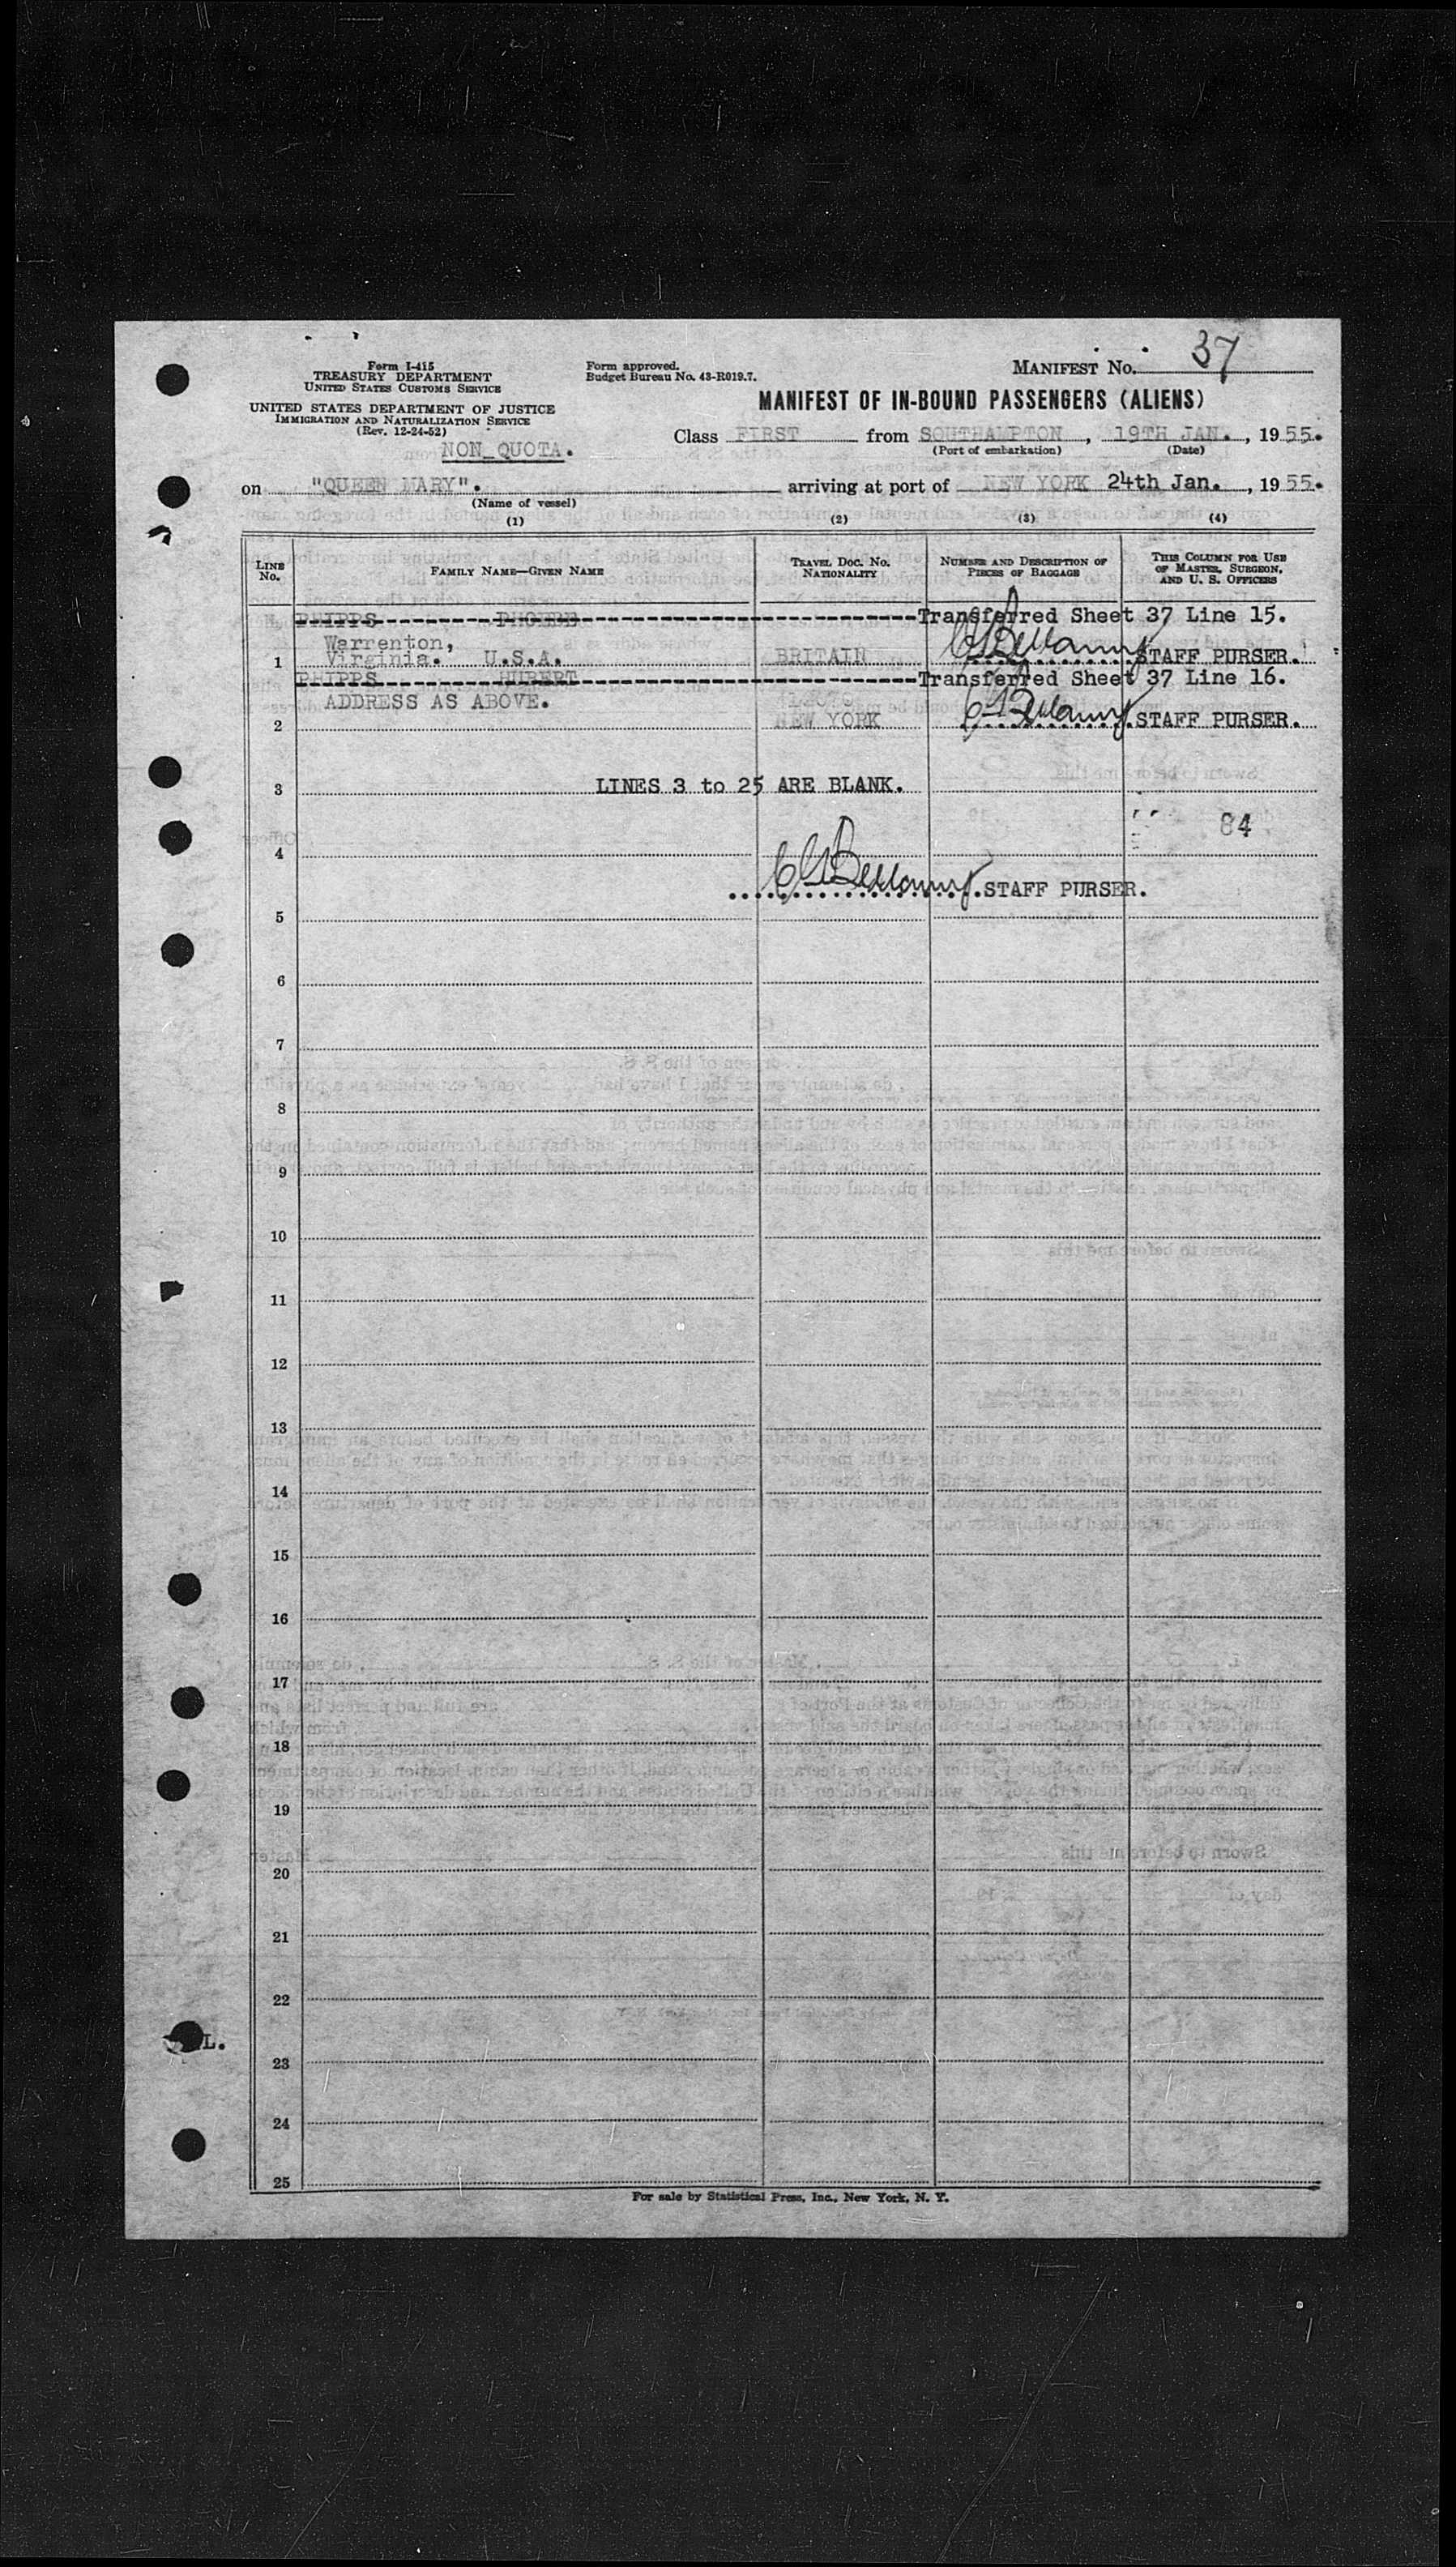 37
Form I-415
TREASURY DEPARTMENT
UNITED STATES CUSTOMS SERVICE
Form approved.
Budget Bureau No. 43-R019.7.
MANIFEST NO.
UNITED STATES DEPARTMENT OF JUSTICE
IMMIGRATION AND NATURALIZATION SERVICE
(Rev. 12-24-52)
MANIFEST OF IN-BOUND PASSENGERS (ALIENS)
NON QUOTA.
Class FIRST from SOUTHAMPTON, 19TH JAN., 1955.
(Port of embarkation) (Date)
on "QUEEN MARY". arriving at port of NEW YORK 24th Jan., 1955.
(Name of vessel)
(1) (2) (3) (4)
LINE No. FAMILY NAME—GIVEN NAME TRAVEL DOC. NO. NATIONALITY NUMBER AND DESCRIPTION OF PIECES OF BAGGAGE THIS COLUMN FOR USE OF MASTER, SURGEON, AND U. S. OFFICERS
PHIPPS PHOEBE Transferred Sheet 37 Line 15.
Warrenton,
1 Virginia. U.S.A. BRITAIN STAFF PURSER.
PHIPPS HUBERT Transferred Sheet 37 Line 16.
ADDRESS AS ABOVE.
2 NEW YORK STAFF PURSER.
3 LINES 3 to 25 ARE BLANK.
84
4
STAFF PURSER.
5
6
7
8
9
10
11
12
13
14
15
16
17
18
19
20
21
22
L.
23
24
25
For sale by Statistical Press, Inc., New York, N. Y.